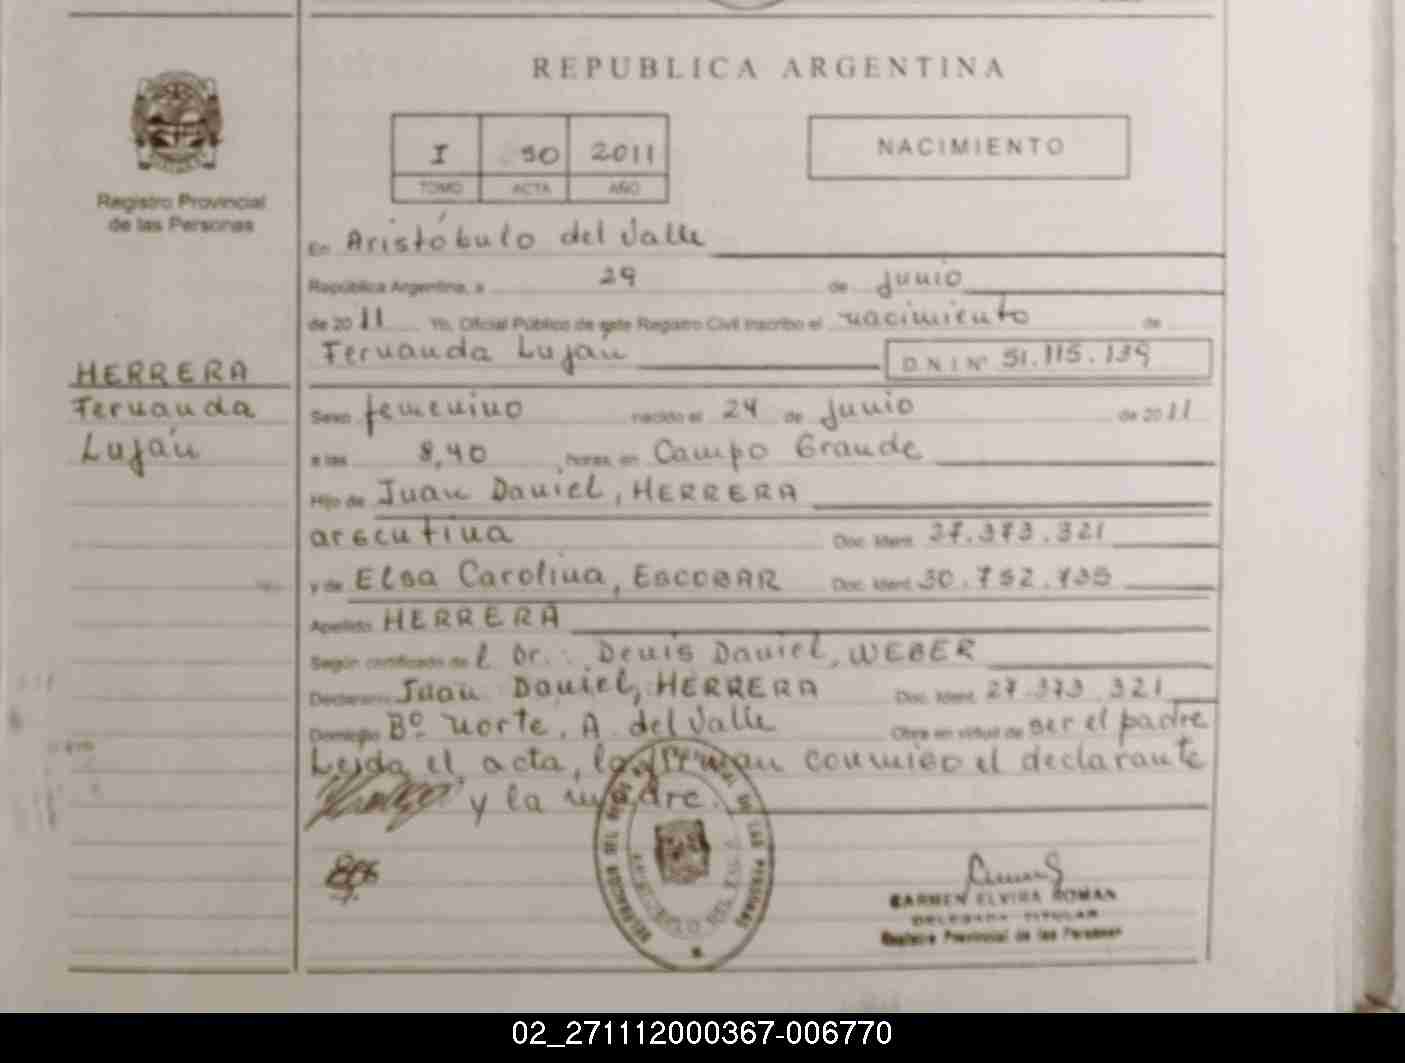 REPUBLICA ARGENTINA
I 90 2011
TOMO ACTA AÑO
NACIMIENTO
Registro Provincial
de las Personas
En Aristóbulo del Valle
República Argentina, a 29 de junio
de 2011 Yo, Oficial Público de este Registro Civil inscribo el nacimiento de
Fernanda Luján D N I Nº 51.115.139
HERRERA
Fernanda
Luján
Sexo femenino nacido el 24 de junio de 2011
a las 8,40 horas, en Campo Grande
Hijo de Juan Daniel, HERRERA
argentina Doc. Ident. 27.373.321
y de Elsa Carolina, ESCOBAR Doc. Ident. 30.752.735
Apellido HERRERA
Según certificado de l Dr. Denis Daniel, WEBER
Declarante Juan Daniel, HERRERA Doc. Ident. 27.373 321
Domicilio Bº Norte, A. del Valle Obra en virtud de ser el padre
Leida el acta, la firman conmigo el declarante
y la madre.
CARMEN ELVIRA ROMAN
DELEGADA TITULAR
Registro Provincial de las Personas
02_271112000367-006770